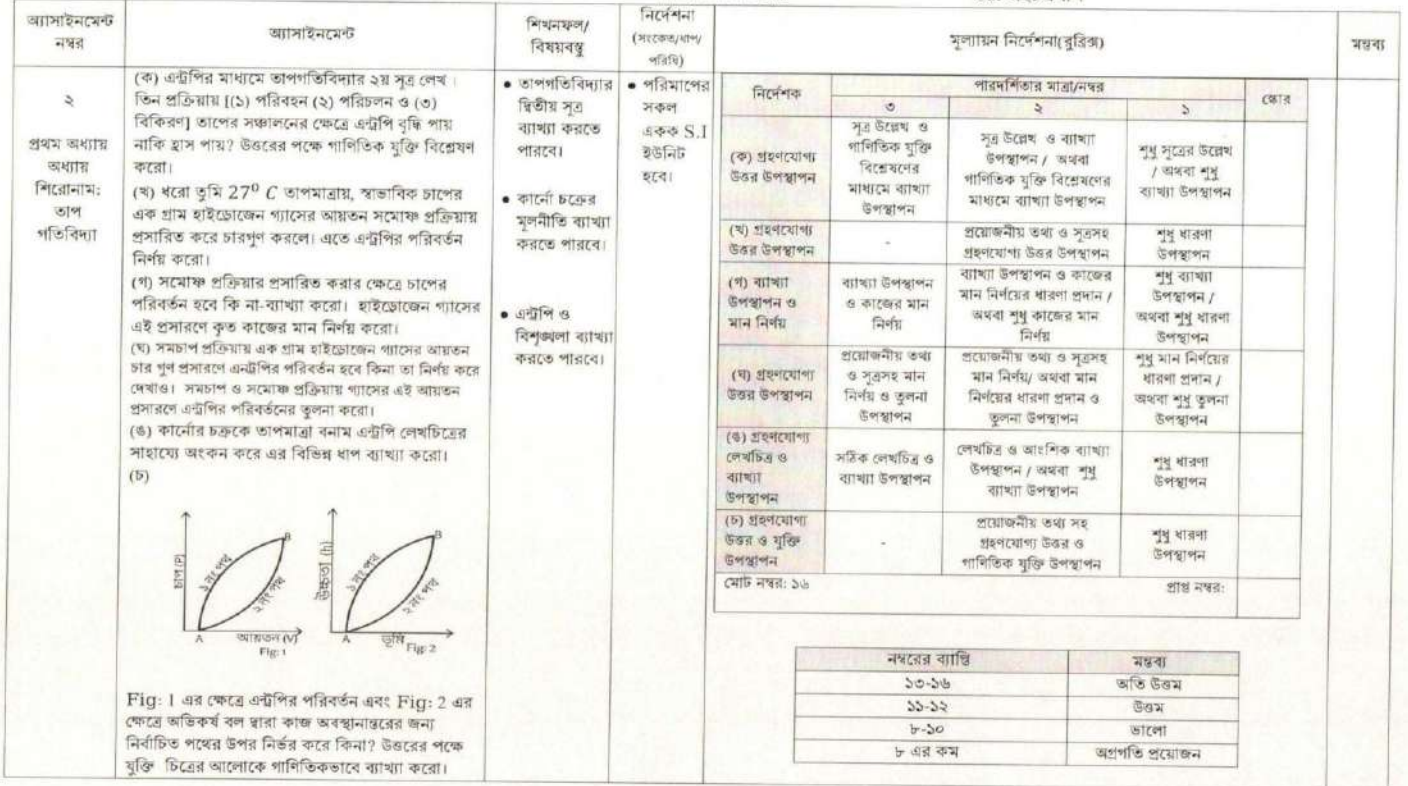 অ্যাসাইনমেন্ট
নম্বর
অ্যাসাইনমেন্ট
শিখনফল/
বিষয়বস্তু
নির্দেশনা
(সংকেত/ধাপ/
পরিধি)
মূল্যায়ন নির্দেশনা(রুব্রিক্স)
মন্তব্য
২
প্রথম অধ্যায়
অধ্যায়
শিরোনাম:
তাপ
গতিবিদ্যা
(ক) এন্ট্রপির মাধ্যমে তাপগতিবিদ্যার ২য় সূত্র লেখ।
তিন প্রক্রিয়ায় [(১) পরিবহন (২) পরিচলন ও (৩)
বিকিরণ] তাপের সঞ্চালনের ক্ষেত্রে এন্ট্রপি বৃদ্ধি পায়
নাকি হ্রাস পায়? উত্তরের পক্ষে গাণিতিক যুক্তি বিশ্লেষণ
করো।
(খ) ধরো তুমি 27⁰ C তাপমাত্রায়, স্বাভাবিক চাপের
এক গ্রাম হাইড্রোজেন গ্যাসের আয়তন সমোষ্ণ প্রক্রিয়ায়
প্রসারিত করে চারগুণ করলে। এতে এন্ট্রপির পরিবর্তন
নির্ণয় করো।
(গ) সমোষ্ণ প্রক্রিয়ার প্রসারিত করার ক্ষেত্রে চাপের
পরিবর্তন হবে কি না-ব্যাখ্যা করো। হাইড্রোজেন গ্যাসের
এই প্রসারণে কৃত কাজের মান নির্ণয় করো।
(ঘ) সমচাপ প্রক্রিয়ায় এক গ্রাম হাইড্রোজেন গ্যাসের আয়তন
চার গুণ প্রসারণে এনট্রপির পরিবর্তন হবে কিনা তা নির্ণয় করে
দেখাও। সমচাপ ও সমোষ্ণ প্রক্রিয়ায় গ্যাসের এই আয়তন
প্রসারণে এন্ট্রপির পরিবর্তনের তুলনা করো।
(ঙ) কার্নোর চক্রকে তাপমাত্রা বনাম এন্ট্রপি লেখচিত্রের
সাহায্যে অংকন করে এর বিভিন্ন ধাপ ব্যাখ্যা করো।
(চ)
চাপ (P)
১ নং পথ
২ নং পথ
A
B
আয়তন (V)
Fig: 1
উচ্চতা (h)
১ নং পথ
২ নং পথ
A
B
ভূমি
Fig: 2
Fig: 1 এর ক্ষেত্রে এন্ট্রপির পরিবর্তন এবং Fig: 2 এর
ক্ষেত্রে অভিকর্ষ বল দ্বারা কাজ অবস্থানান্তরের জন্য
নির্বাচিত পথের উপর নির্ভর করে কিনা? উত্তরের পক্ষে
যুক্তি চিত্রের আলোকে গাণিতিকভাবে ব্যাখ্যা করো।
• তাপগতিবিদ্যার
দ্বিতীয় সূত্র
ব্যাখ্যা করতে
পারবে।
• কার্নো চক্রের
মূলনীতি ব্যাখ্যা
করতে পারবে।
• এন্ট্রপি ও
বিশৃঙ্খলা ব্যাখ্যা
করতে পারবে।
• পরিমাপের
সকল
একক S.I
ইউনিট
হবে।
নির্দেশক
পারদর্শিতার মাত্রা/নম্বর
স্কোর
৩
২
১
(ক) গ্রহণযোগ্য
উত্তর উপস্থাপন
সূত্র উল্লেখ ও
গাণিতিক যুক্তি
বিশ্লেষণের
মাধ্যমে ব্যাখ্যা
উপস্থাপন
সূত্র উল্লেখ ও ব্যাখ্যা
উপস্থাপন / অথবা
গাণিতিক যুক্তি বিশ্লেষণের
মাধ্যমে ব্যাখ্যা উপস্থাপন
শুধু সূত্রের উল্লেখ
/ অথবা শুধু
ব্যাখ্যা উপস্থাপন
(খ) গ্রহণযোগ্য
উত্তর উপস্থাপন
-
প্রয়োজনীয় তথ্য ও সূত্রসহ
গ্রহণযোগ্য উত্তর উপস্থাপন
শুধু ধারণা
উপস্থাপন
(গ) ব্যাখ্যা
উপস্থাপন ও
মান নির্ণয়
ব্যাখ্যা উপস্থাপন
ও কাজের মান
নির্ণয়
ব্যাখ্যা উপস্থাপন ও কাজের
মান নির্ণয়ের ধারণা প্রদান /
অথবা শুধু কাজের মান
নির্ণয়
শুধু ব্যাখ্যা
উপস্থাপন /
অথবা শুধু ধারণা
উপস্থাপন
(ঘ) গ্রহণযোগ্য
উত্তর উপস্থাপন
প্রয়োজনীয় তথ্য
ও সূত্রসহ মান
নির্ণয় ও তুলনা
উপস্থাপন
প্রয়োজনীয় তথ্য ও সূত্রসহ
মান নির্ণয়/ অথবা মান
নির্ণয়ের ধারণা প্রদান ও
তুলনা উপস্থাপন
শুধু মান নির্ণয়ের
ধারণা প্রদান /
অথবা শুধু তুলনা
উপস্থাপন
(ঙ) গ্রহণযোগ্য
লেখচিত্র ও
ব্যাখ্যা
উপস্থাপন
সঠিক লেখচিত্র ও
ব্যাখ্যা উপস্থাপন
লেখচিত্র ও আংশিক ব্যাখ্যা
উপস্থাপন / অথবা শুধু
ব্যাখ্যা উপস্থাপন
শুধু ধারণা
উপস্থাপন
(চ) গ্রহণযোগ্য
উত্তর ও যুক্তি
উপস্থাপন
-
প্রয়োজনীয় তথ্য সহ
গ্রহণযোগ্য উত্তর ও
গাণিতিক যুক্তি উপস্থাপন
শুধু ধারণা
উপস্থাপন
মোট নম্বর: ১৬
প্রাপ্ত নম্বর:
নম্বরের ব্যাপ্তি
মন্তব্য
১৩-১৬
অতি উত্তম
১১-১২
উত্তম
৮-১০
ভালো
৮ এর কম
অগ্রগতি প্রয়োজন